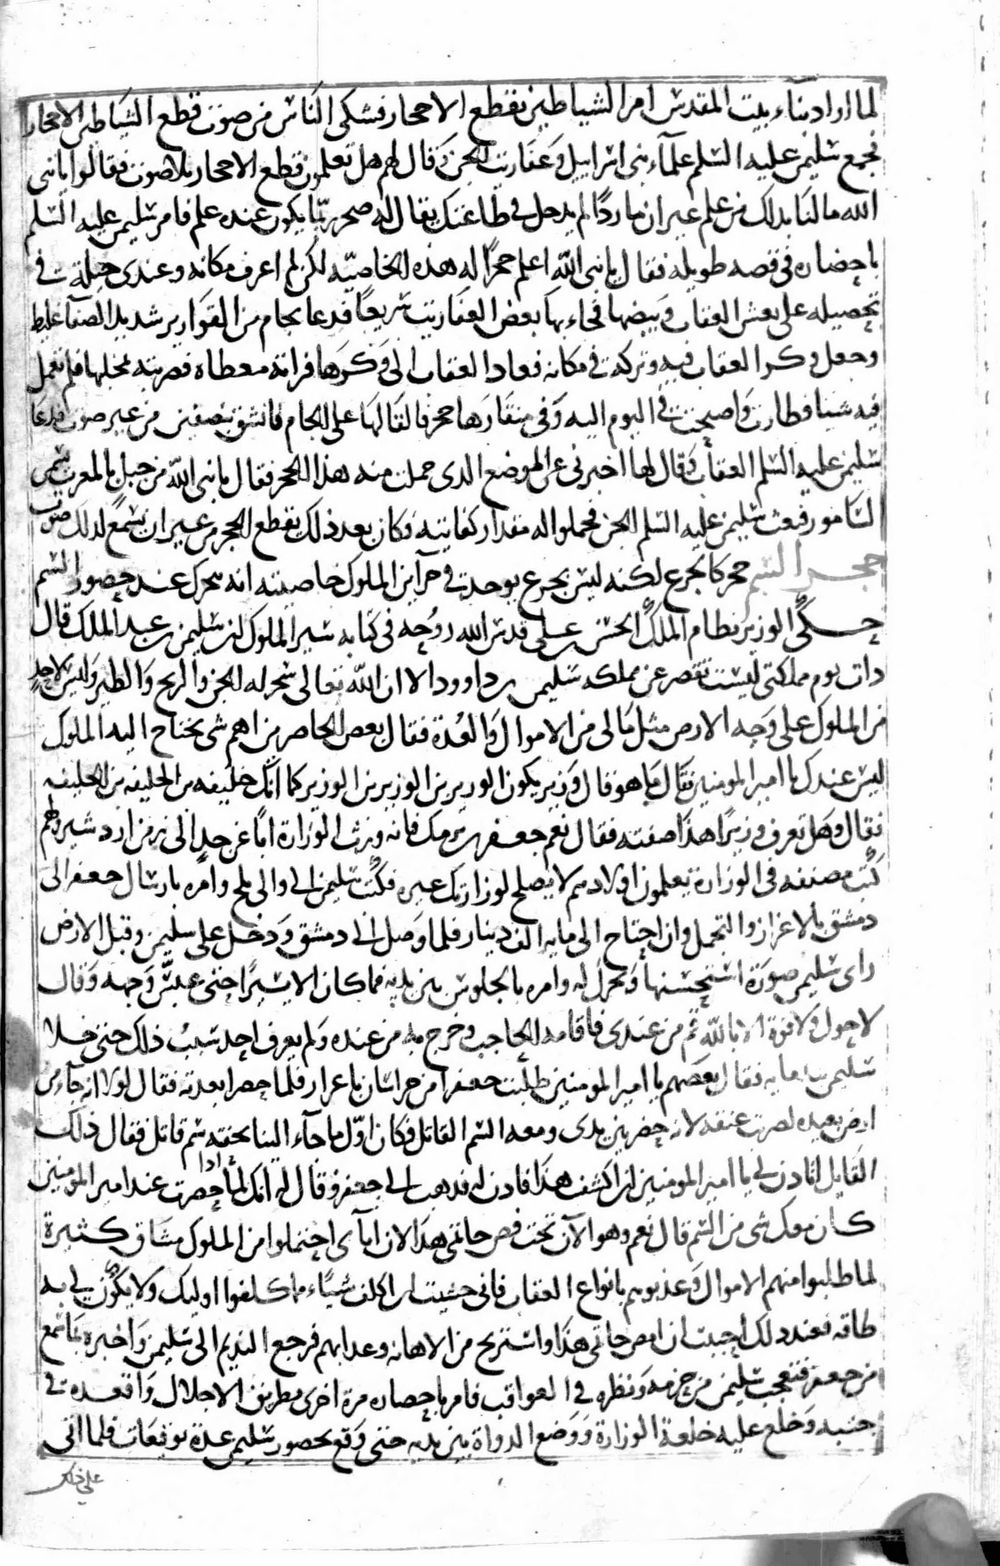 لما اراد بناء بيت المقدس امر الشياطين بقطع الاحجار فشكى الناس من صوت قطع الشياطين الاحجار
فجمع سليمن عليه السلم علماء بنى اسرائيل وعفاريت الجن وقال لهم هل تعلمون قطع الاحجار بلا صوت فقالوا يا نبى
الله ما لنا بذلك من علم غير ان ماردًا لم يدخل فى طاعتك يقال له صخر ربما يكون عنده علم فامر سليمن عليه السلم
باحضاره فى قصه طويله فقال يا نبى الله اعلم حجرًا له هذه الخاصيه لكن لم اعرف مكانه وعندى حيلة فى
تحصيله على بعش العقاب وبيضها فجاء بها بعض العفاريت سريعًا فدعا بجام من القوارير شديد الصفا غليظ
وجعل وكر العقاب فيه وتركه فى مكانه فعاد العقاب الى وكرها فراته مغطاه فضربته بمخلبها فلم يعمل
فيه شيا فطارت واصبحت فى اليوم اليه وفى منقارها حجر فالقالها على الجام فانشق بنصفين من غير صوت فدعا
سليمن عليه السلم العقاب وقال لها اخبرنى عن الموضع الدى حملت منه هذا الحجر فقال يا نبى الله من جبل بالمغرب يسمى
السامور فبعث سليمن عليه السلم الجن فحملوا له مقدار كفايته وكان بعد ذلك يقطع الحجر من غير ان يسمع لذلك صوت
حجر السم حجر كالجزع لكنه ليس بجزع يوجد فى خزاين الملوك خاصيته انه يتحرك عند حضور السم
حكى الوزير نظام الملك الحسن بن على قدس الله روحه فى كتابه سير الملوك ان سليمن بن عبد الملك قال
ذات يوم مملكتى ليست تقصر عن مملكه سليمن بن داوود الا ان الله تعالى سخر له الجن والريح والطير وليس لاحد
من الملوك على وجه الارض مثل مالى من الاموال والعدة فقال بعض الحاضرين اهم شى يحتاج اليه الملوك
ليس عندك يا امير المومنين فقال ما هو قال وزير يكون الوزير بن الوزير بن الوزير كما انك خليفه بن الخليفه بن الخليفه
فقال وهل تعرف وزيرًا هذا صفته فقال نعم جعفر بن برمك فانه ورث الوزارة ابًا عن جد الى زمن اردشير ولهم
كتب مصنفه فى الوزارة يعلمون اولادهم لا يصلح لوزارتك غيره فكتب سليمن الى والى بلخ وامره بارسال جعفر الى
دمشق بالاعزاز والتجمل وان احتاج الى مايه الف دينار فلما وصل الى دمشق ودخل على سليمن وقبل الارض
راى سليمن صورة استحسنها وتحرك له وامره بالجلوس بين يديه فما كان الا يسيرًا حتى عبس وجهه وقال
لا حول ولا قوة الا بالله قم من عندى فاقامه الحاجب وخرج به من عنده ولم يعرف احد سبب ذلك حتى خلا
سليمن بندمايه فقال بعضهم يا امير المومنين طلبت جعفرا من خراسان باعزاز فلما حضر ابعدته فقال لولا انه جاء من
ارض بعيده لضربت عنقه لانه حضر بين يدى ومعه السم القاتل فكان اول ما جاء الينا بتحفته سم قاتل فقال ذلك
القايل اتاذن لى يا امير المومنين ان اكشف هذا فاذن له فذهب الى جعفر وقال له انك لما حضرت عند امير المومنين
كان معك شى من السم قال نعم وهو الآن تحت فص خاتمى هذا لان ابآى احتملوا من الملوك مشاق كثيرة
لما طلبوا منهم الاموال وعذبوهم بانواع العقاب فانى خشيت ان اكلف شياء مما كلفوا اوليك ولا يكون لى به
طاقه فعند ذلك احببت ان امص خاتمى هذا واستريح من الاهانه وعذابهم فرجع النديم الى سليمن واخبره بما سمع
من جعفر فتعجب سليمن من حزمه ونظره فى العواقب فامر باحضاره مرة اخرى بطريق الاجلال واقعده فى
جنبه وخلع عليه خلعة الوزارة ووضع الدواة بين يديه حتى وقع بحضور سليمن عدة توقيعات فلما اتى
على ذلك